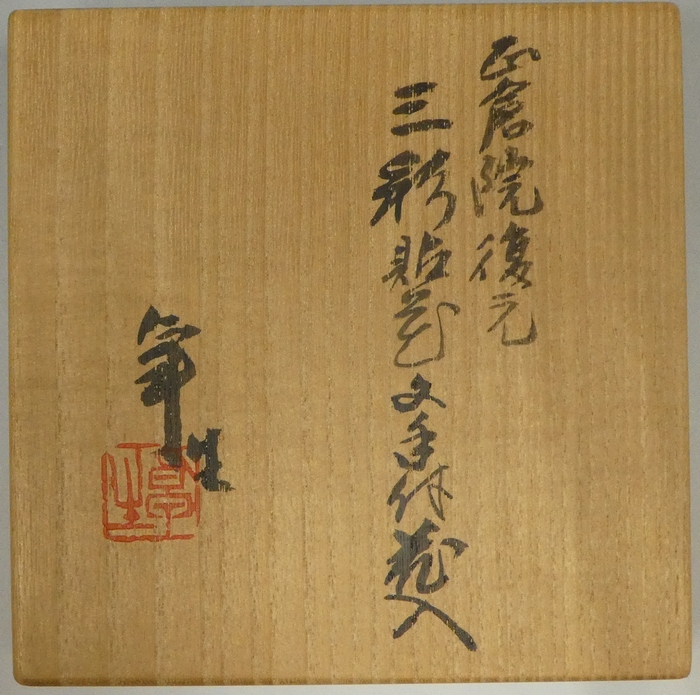 正倉院復元
三彩貼花文手付花入
生